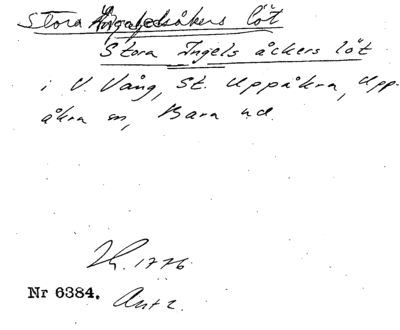 Stora Ingelsåkers löt
Stora Ingels åckers löt
i V. Vång, St. Uppåkra, Upp-
åkra sn, Bara hd.
1776
Nr 6384. Akt 2.